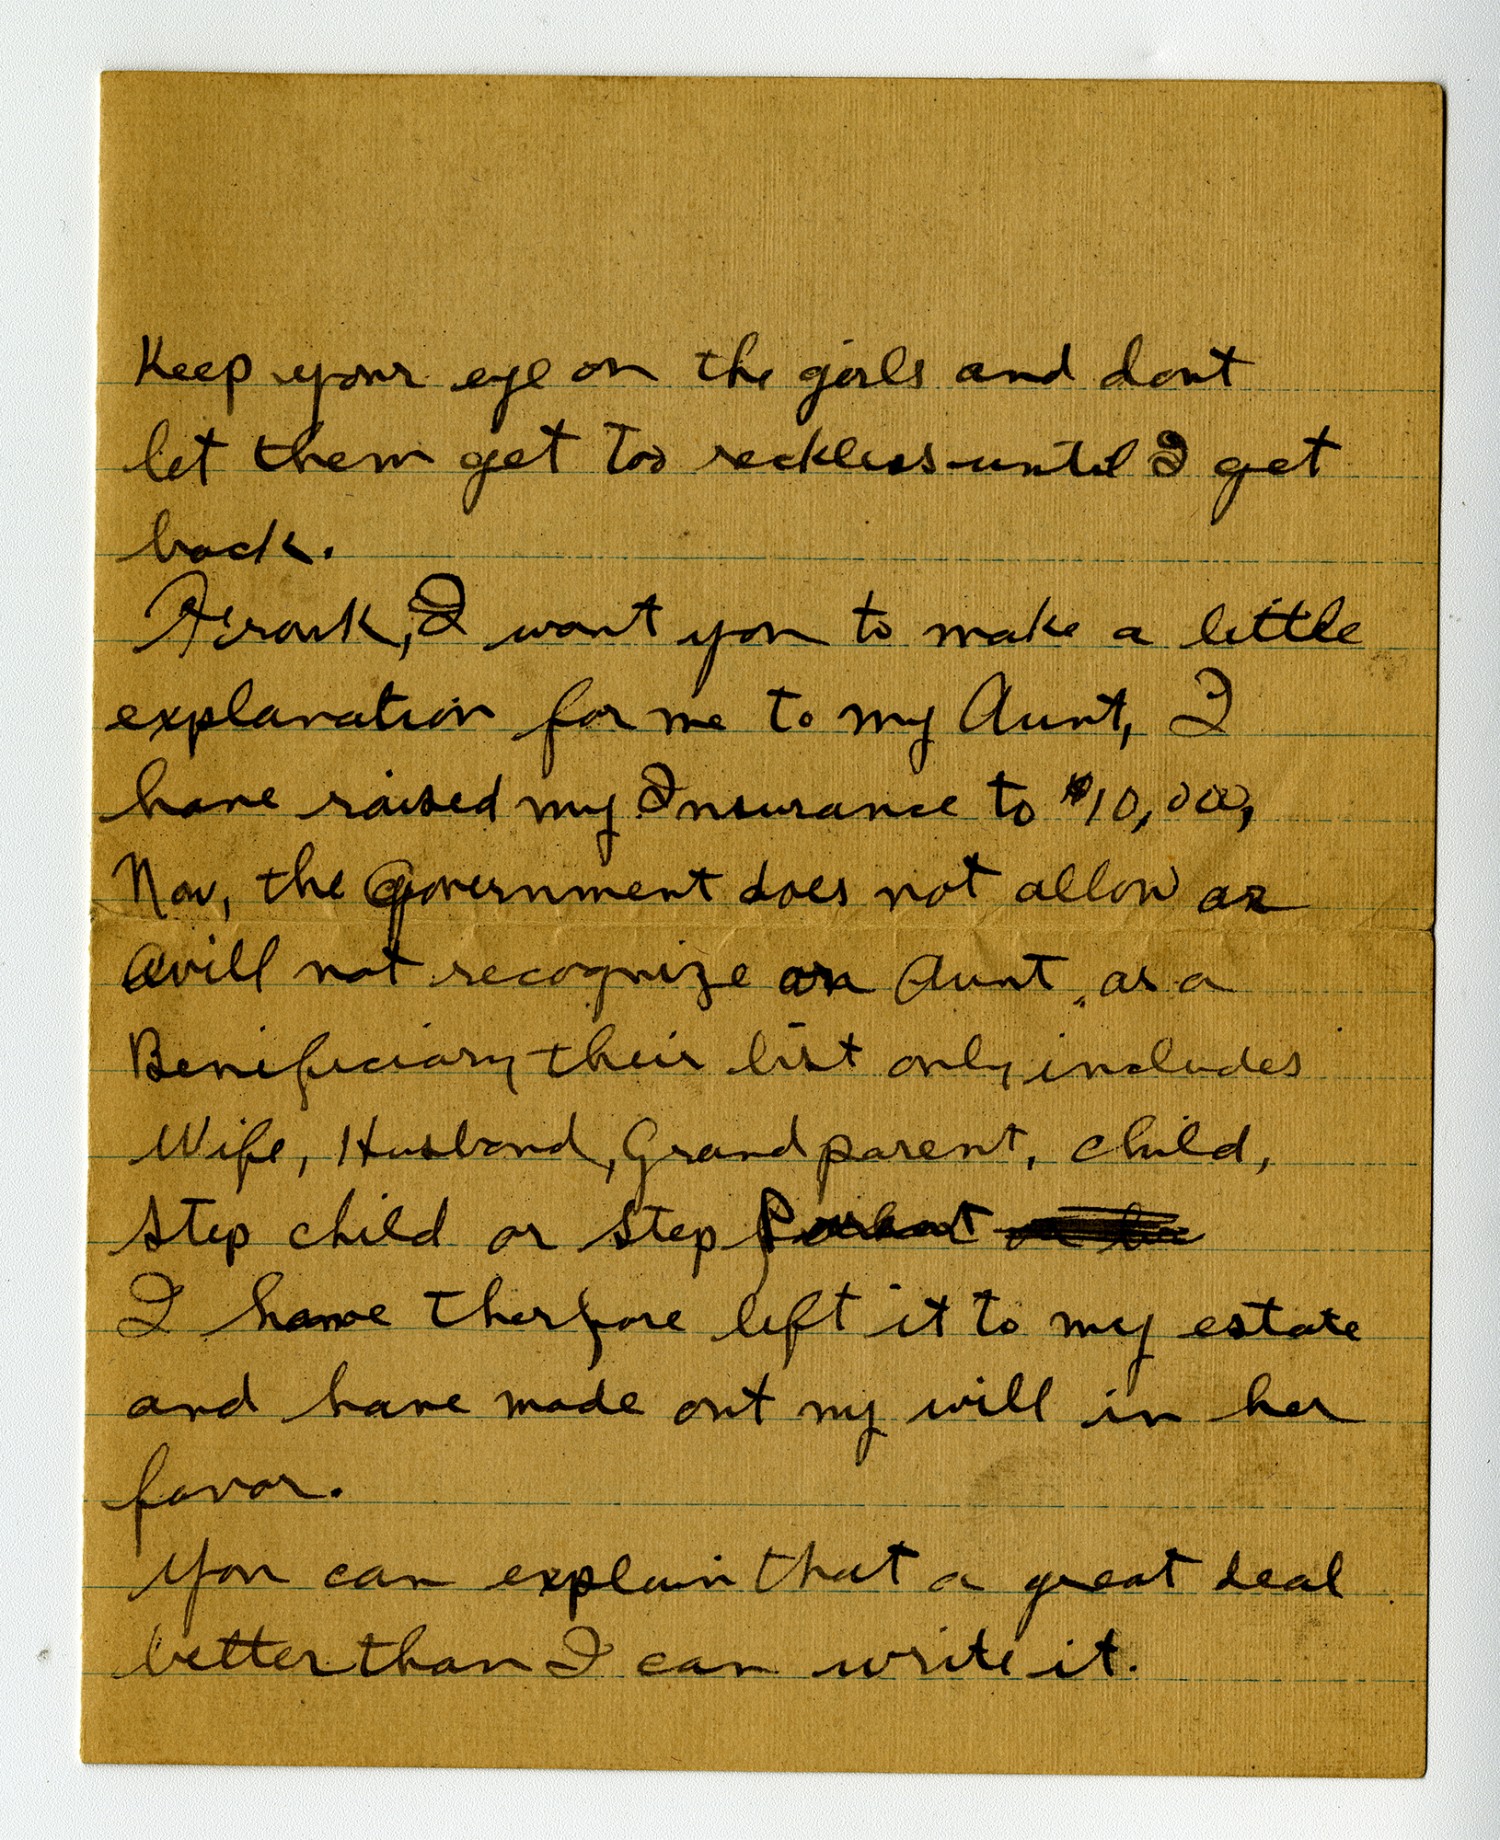 Keep your eye on the girls and dont
let them get too reckless until I get
back.
Frank, I want you to make a little
explanation for me to my Aunt, I
have raised my Insurance to $10,000,
Now, the Government does not allow or
will not recognize an Aunt, as a
Benificiary their list only includes
Wife, Husband, Grandparent, child,
Step child or Step Parent
I have therfore left it to my estate
and have made out my will in her
favor.
You can explain that a great deal
better than I can write it.